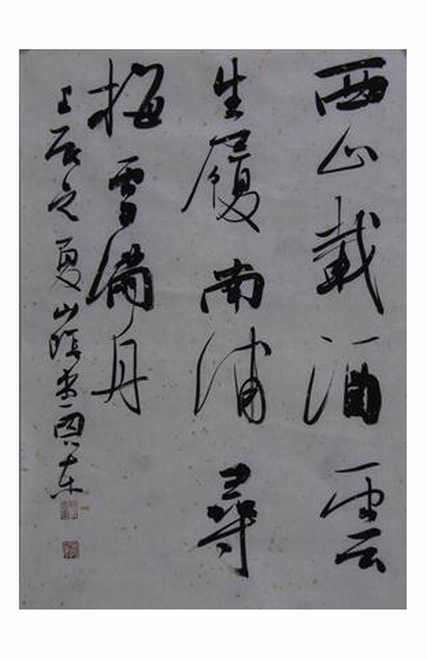 西山載酒雲
生履南浦尋
梅雪滿舟
壬辰之夏山陰